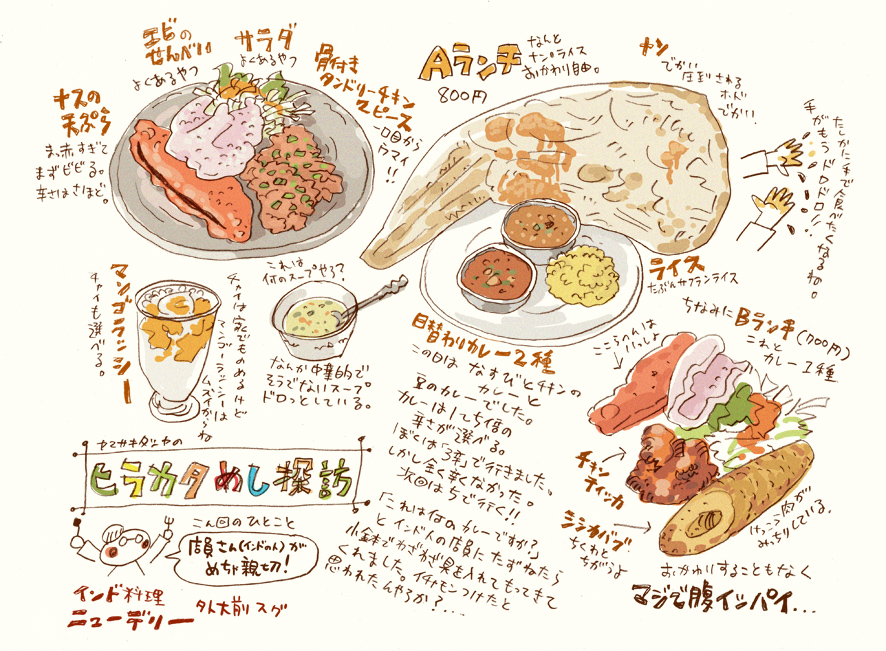 エビの
せんべい
よくあるやつ
サラダ
よくあるやつ
骨付き
タンドリーチキン
2ピース
一口目から
ウマイ!!
ナスの
天ぷら
まっ赤すぎて
まずビビる。
辛さはさほど。
Aランチ
800円
なんと
ナン・ライス
おかわり自由。
ナン
でかい
圧到される
ホド
でかい!
たしかに手で食べたくなるね。
手がもうドロドロ!!
ライス
たぶんサフランライス
マンゴーラッシー
チャイも選べる。
チャイは家でものめるけど
マンゴーラッシーは
ムズイからね
これは
何のスープやろ?
なんか中華的で
そうでないスープ。
ドロッとしている。
日替わりカレー2種
この日は なすびとチキンの
カレーと
豆のカレーでした。
カレーは1〜5倍の
辛さが選べる。
ぼくは「3辛」で行きました。
しかし全く辛くなかった。
次回は5で行く!!
「これは何のカレーですか?」
とインド人の店員にたずねたら
小鉢でわざわざ具を入れてもってきて
くれました。イチャモンつけたと
思われたんやろか?...
ちなみに Bランチ(700円)
これと
カレー1種
こころへんは
いっしょ
チキン
ティッカ
シシカバブ
ちくわと
ちがうよ
けっこう肉が
みっちりしている。
おかわりすることもなく
マジで腹イッパイ...
ヤマサキタツヤの
ヒラカタめし探訪
こん回のひとこと
店員さん(インドの人)が
めちゃ親切!
インド料理
ニューデリー
外大前スグ